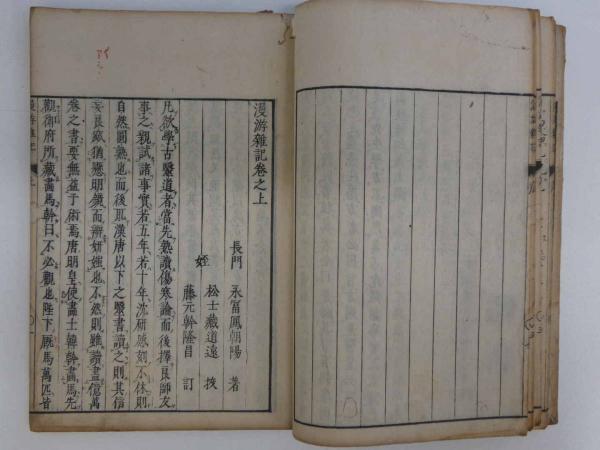 漫游雜記卷之上
長門　永冨鳳朝陽　著
姪　松士藏道遠　挍
藤元幹隆昌　訂
凡欲學古醫道者當先熟讀傷寒論而後擇良師友
事之親試諸事實若五年若十年沈研感刻不休則
自然圓熟也而後取漢唐以下之醫書讀之則其信
妄良窳猶應明鏡而辨妍媸也不然則雖讀盡億萬
卷之書要無益于術焉唐明皇使畫士韓幹畫馬先
觀御府所藏畫馬幹曰不必觀也陛下厩馬萬匹皆